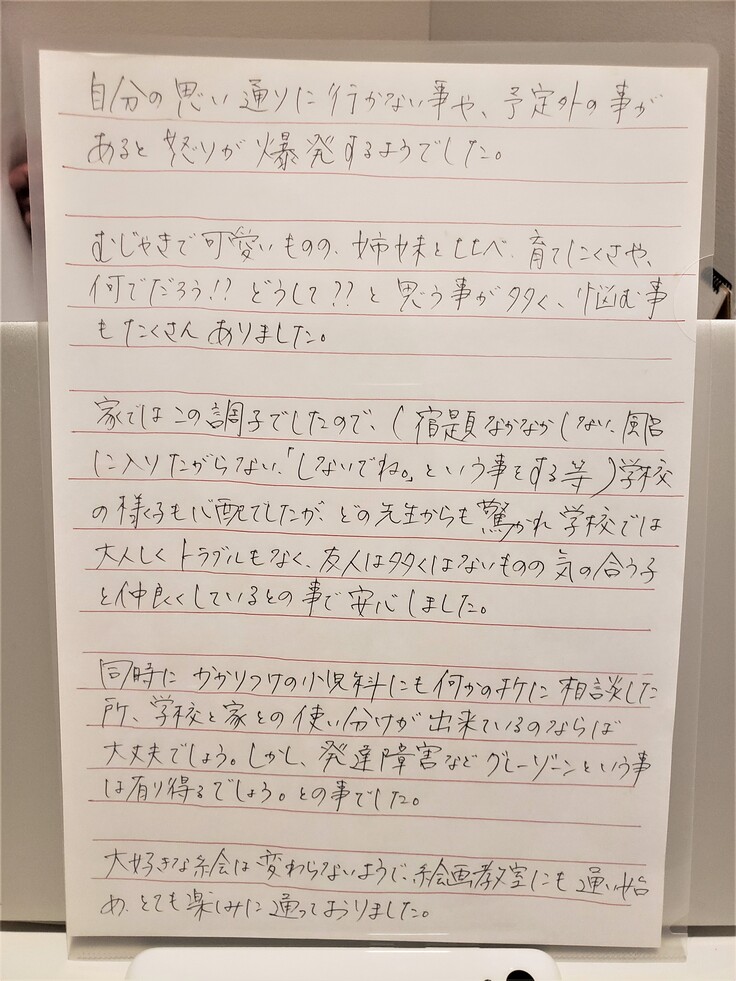 自分の思い通りに行かない事や、予定外の事が
あると怒りが爆発するようでした。
むじゃきで可愛いものの、姉妹と比べ、育てにくさや、
何でだろう!! どうして?? と思う事が多く、悩む事
もたくさんありました。
家ではこの調子でしたので、(宿題なかなかしない、風呂
に入りたがらない、「しないでね。」という事をする等)学校
の様子も心配でしたが、どの先生からも驚かれ学校では
大人しくトラブルもなく、友人は多くはないものの気の合う子
と仲良くしているとの事で安心しました。
同時にかかりつけの小児科にも何かの折に相談した
所、学校と家との使い分けが出来ているのならば
大丈夫でしょう。しかし、発達障害などグレーゾーンという事
は有り得るでしょう。との事でした。
大好きな絵は変わらないようで、絵画教室にも通い始
め、とても楽しみに通っておりました。